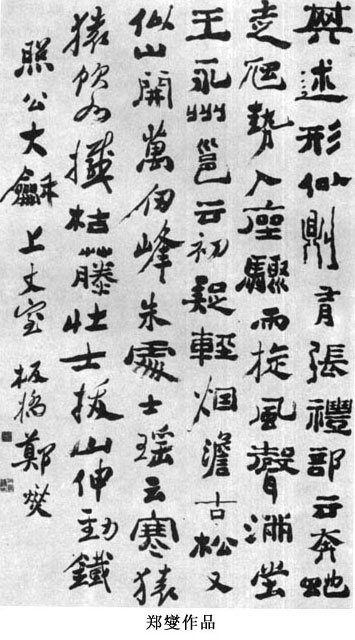 其述形似則有張禮部云奔虵
走虺勢入座驟雨旋風聲滿堂
王永州邕云初疑輕烟澹古松又
似山開萬仞峰朱處士瑶云寒猿
猿飲水撼枯藤壯士拔山伸勁鐵
照公大龢上丈室板橋鄭燮
郑燮作品